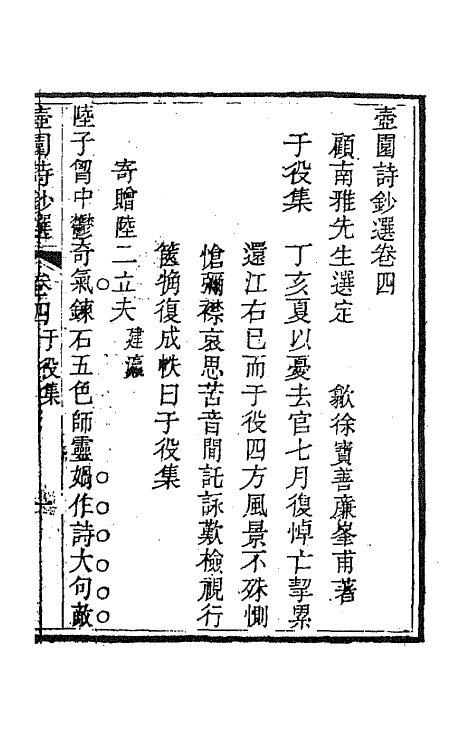 壺園詩鈔選卷四
顧南雅先生選定　歙徐寶善廉峯甫著
于役集　丁亥夏以憂去官七月復悼亡挈累
還江右已而于役四方風景不殊惻
愴彌襟哀思苦音間託詠歎檢視行
篋犓復成帙曰于役集
寄贈陸二立夫建瀛
陸子胷中鬱奇氣鍊石五色師靈媧作詩大句敵
壺園詩鈔選　卷四　于役集　一